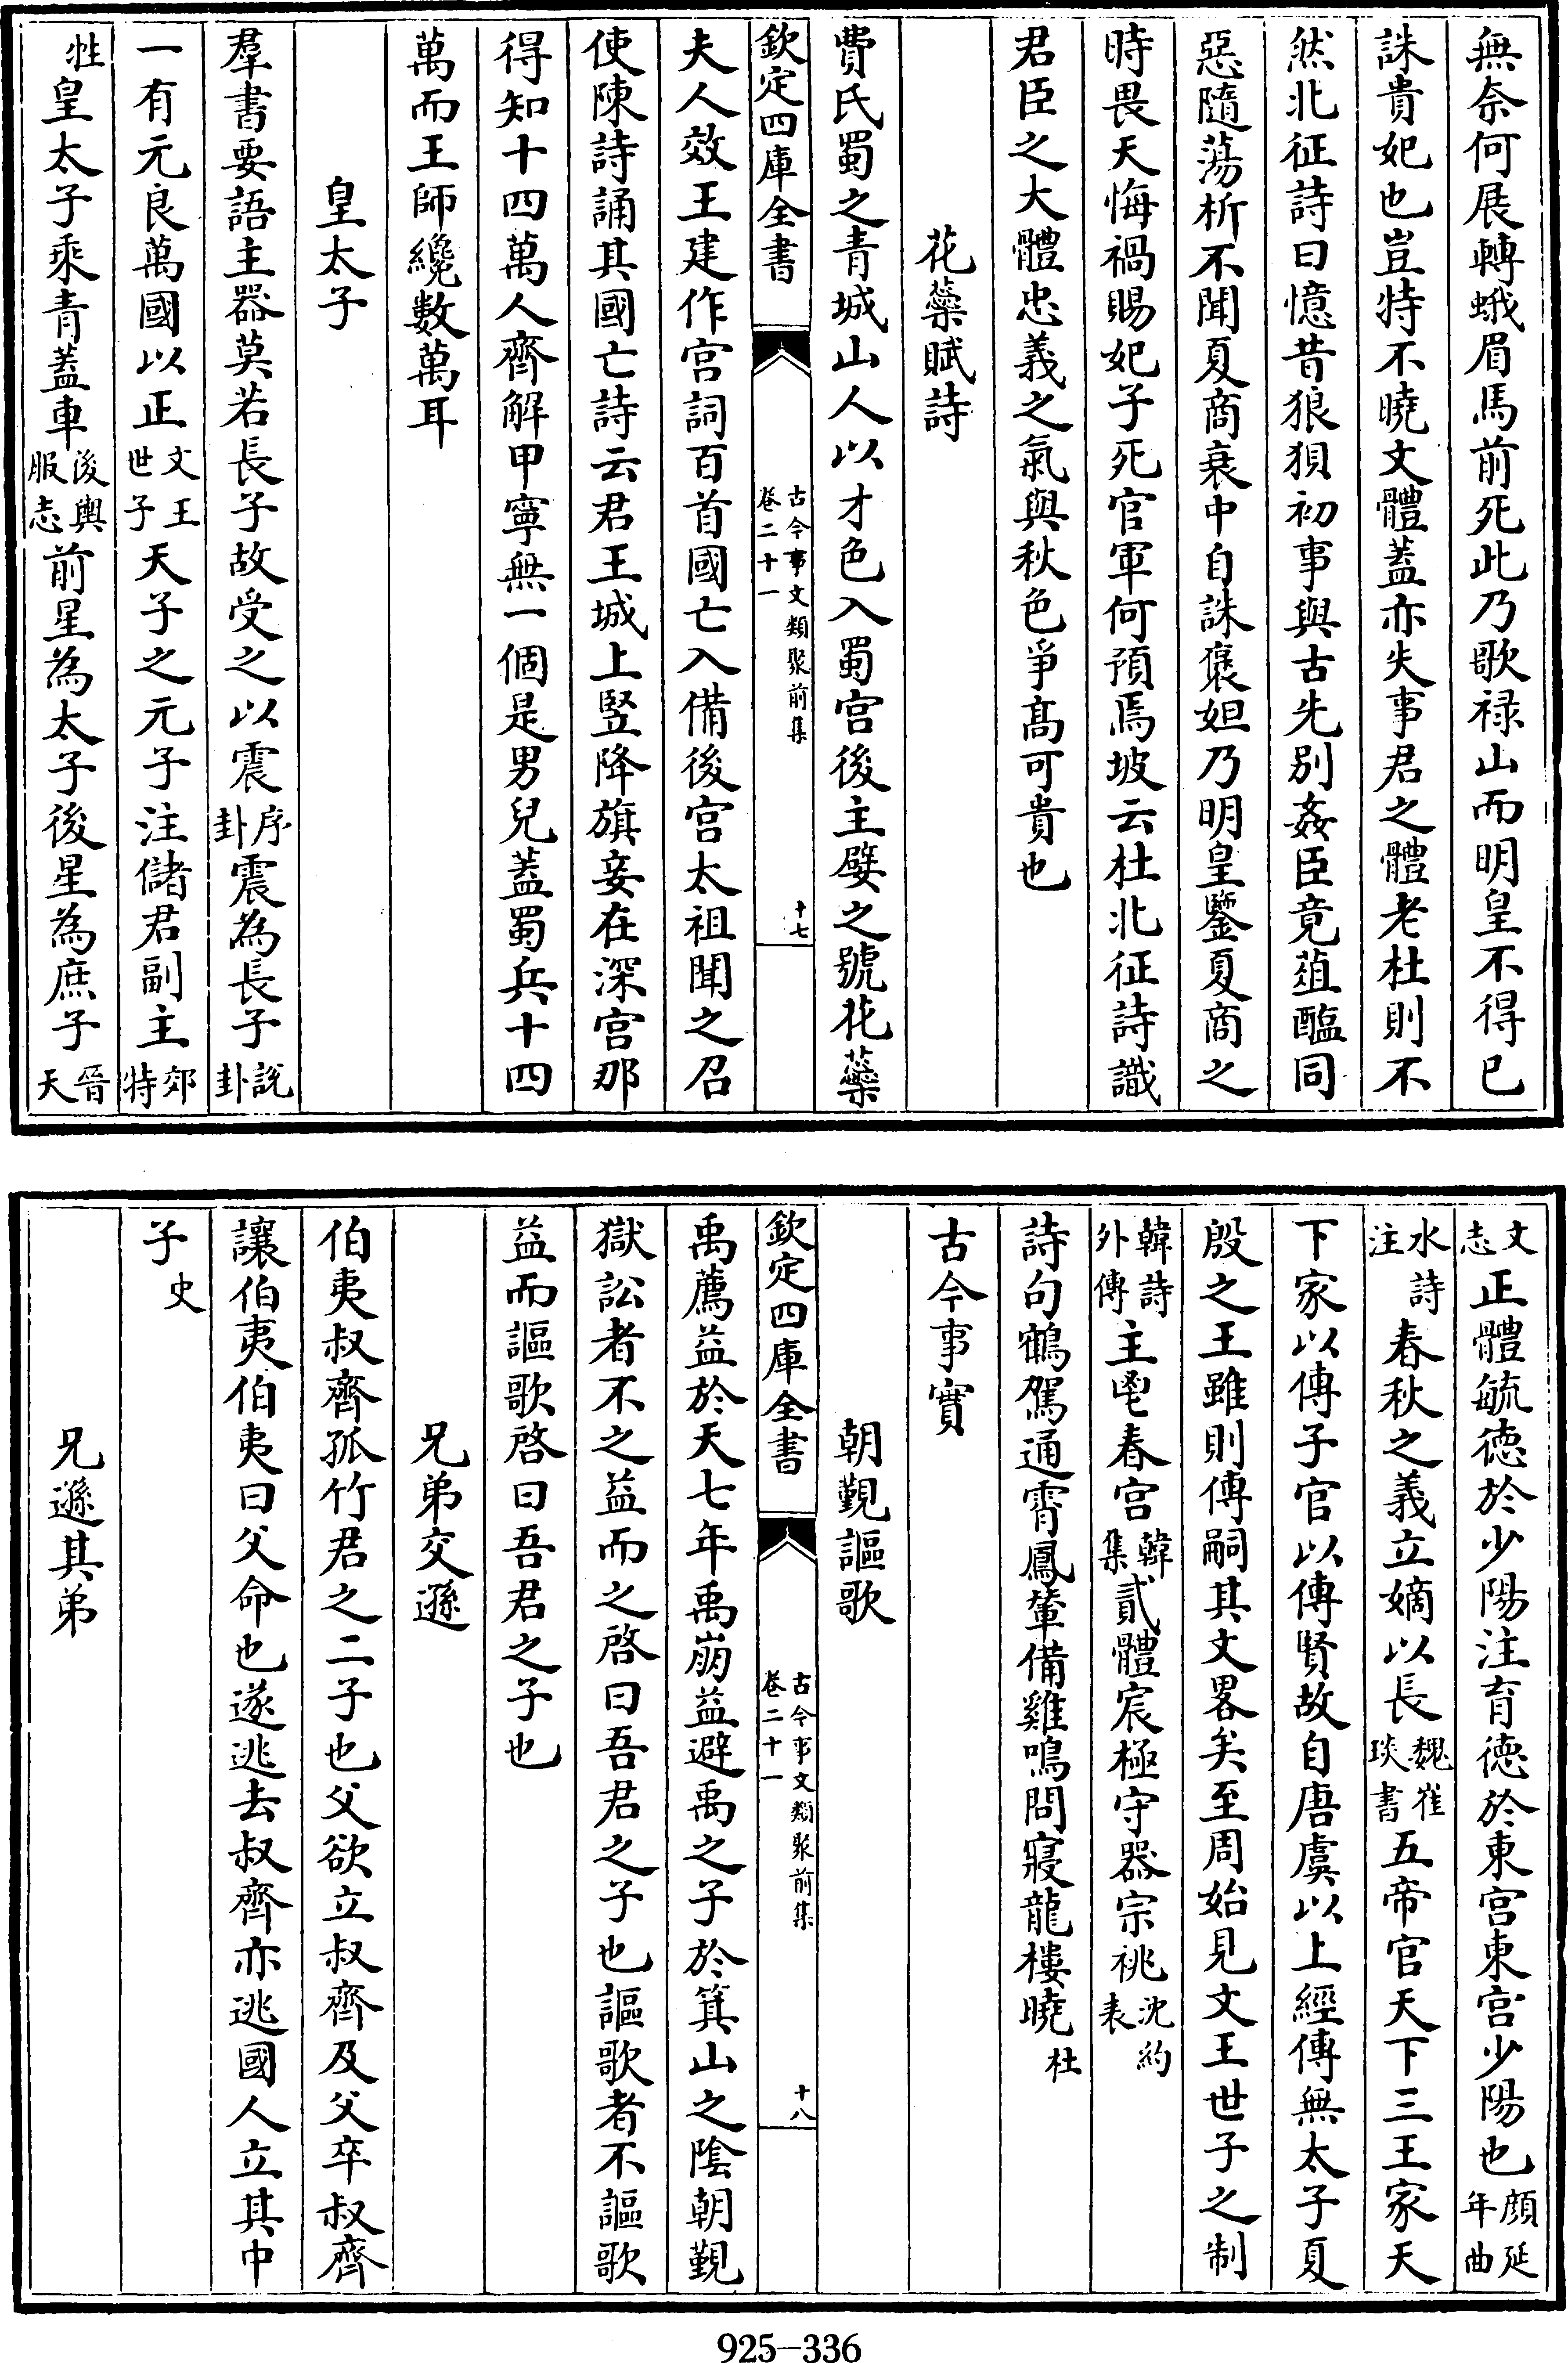 無奈何展轉蛾眉馬前死此乃歌禄山而明皇不得已
誅貴妃也豈特不曉文體蓋亦失事君之體老杜則不
然北征詩曰憶昔狼狽初事與古先别姦臣竟葅醢同
惡隨蕩析不聞夏商衰中自誅褒妲乃明皇鑒夏商之
時畏天悔禍賜妃子死官軍何預焉坡云杜北征詩識
君臣之大體忠義之氣與秋色爭髙可貴也
花蘂賦詩
費氏蜀之青城山人以才色入蜀宫後主嬖之號花蘂
欽定四庫全書
古今事文類聚前集
卷二十一
十七
夫人效王建作宫詞百首國亡入備後宫太祖聞之召
使陳詩誦其國亡詩云君王城上竪降旗妾在深宫那
得知十四萬人齊解甲寧無一個是男兒蓋蜀兵十四
萬而王師纔數萬耳
皇太子
羣書要語主器莫若長子故受之以震序卦震為長子説卦
一有元良萬國以正文王世子天子之元子注儲君副主郊特
牲皇太子乘青蓋車後輿服志前星為太子後星為庶子晉天
文志正體毓徳於少陽注育徳於東宫東宫少陽也顔延年曲
水詩注春秋之義立嫡以長魏崔琰書五帝官天下三王家天
下家以傳子官以傳賢故自唐虞以上經傳無太子夏
殷之王雖則傳嗣其文畧矣至周始見文王世子之制
韓詩外傳主鬯春宫韓集貳體宸極守器宗祧沈約表
詩句鶴駕通霄鳳輦備雞鳴問寢龍樓曉杜
古今事實
朝覲謳歌
欽定四庫全書
古今事文類聚前集
卷二十一
十八
禹薦益於天七年禹崩益避禹之子於箕山之隂朝覲
獄訟者不之益而之啓曰吾君之子也謳歌者不謳歌
益而謳歌啓曰吾君之子也
兄弟交遜
伯夷叔齊孤竹君之二子也父欲立叔齊及父卒叔齊
讓伯夷伯夷曰父命也遂逃去叔齊亦逃國人立其中
子史
兄遜其弟
925-336